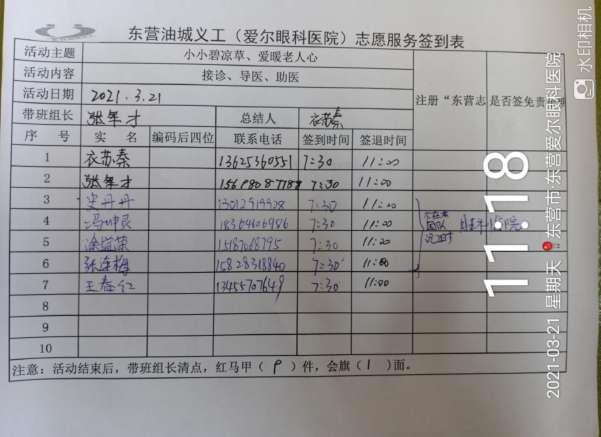 东营油城义工（爱尔眼科医院）志愿服务签到表
活动主题 小小碧凉草、爱暖老人心
活动内容 接诊、导医、助医
活动日期 2021.3.21 注册“东营志 是否签免责
带班组长 张军才 总结人 衣苏秦
序 号 实 名 编码后四位 联系电话 签到时间 签退时间
1 衣苏秦 7:30 11:00
2 张军才 7:30 11:00
3 史丹丹 7:30 11:00
4 冯坤良 18364606986 7:30 11:00
5 15187068795 7:30 11:00
6 张连梅 15828318840 7:30 11:00
7 王春红 13455707649 7:30 11:00
8
9
10
注意：活动结束后，带班组长清点，红马甲（ 9 ）件，会旗（ 1 ）面。
11:18
2021-03-21 星期天 东营市·东营爱尔眼科医院
水印相机